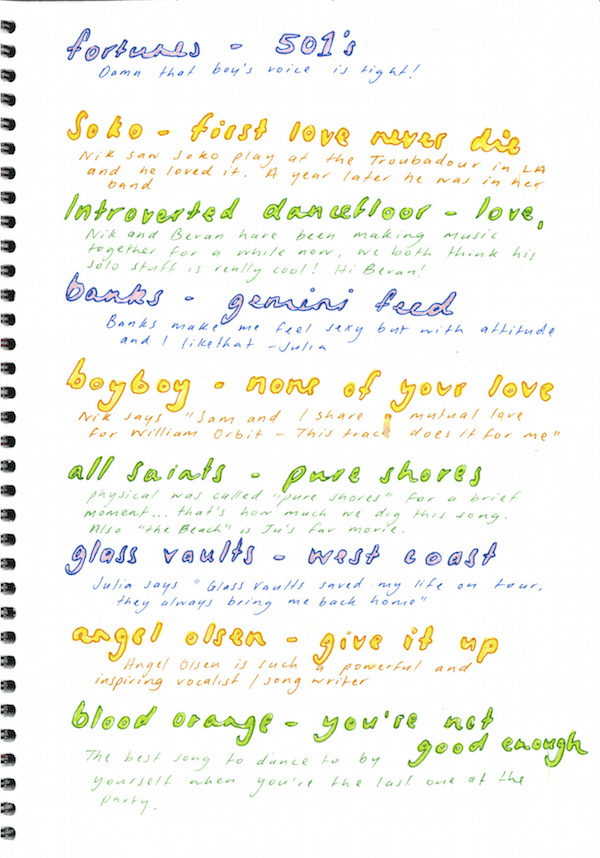 fortunes - 501's
Damn that boy's voice is tight!
Soko - first love never die
Nik saw Soko play at the Troubadour in LA
and he loved it. A year later he was in her
band
Introverted dancefloor - love,
Nik and Bevan have been making music
together for a while now, we both think his
solo stuff is really cool! Hi Bevan!
banks - gemini feed
Banks make me feel sexy but with attitude
and I like that - Julia
boyboy - none of your love
Nik says "Sam and I share a mutual love
for William Orbit - This track does it for me"
all saints - pure shores
physical was called "pure shores" for a brief
moment... that's how much we dig this song.
Also "the Beach" is Ju's fav movie.
glass vaults - west coast
Julia says "Glass Vaults saved my life on tour,
they always bring me back home"
angel olsen - give it up
Angel Olsen is such a powerful and
inspiring vocalist / song writer
blood orange - you're not
good enough
The best song to dance to by
yourself when you're the last one at the
party.